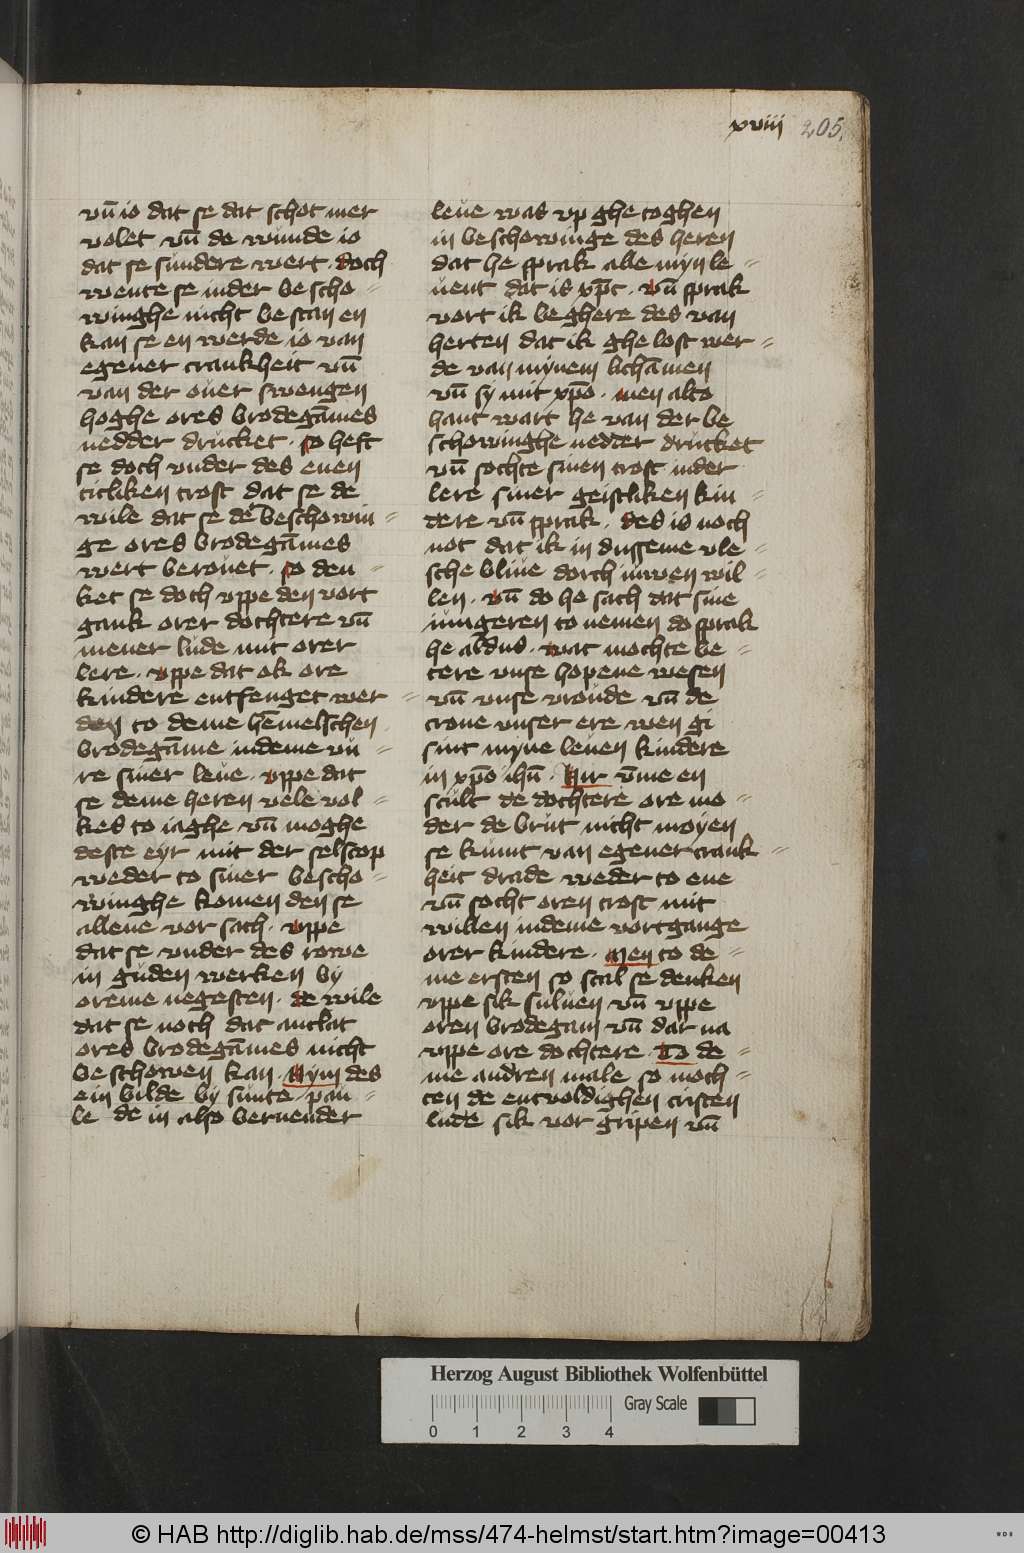 xviii 205.
vn̄ io dat se dat schot mer
volet vn̄ de wunde io
dat se sundere wert · doch
wente se in der bescho=
winghe nicht bestan en
kan se en werde io van
egener crankheit vn̄
van der ouer swengen
hoghe ores brodegāmes
nedder drucket · so heft
se doch vnder des euen
titliken trost dat se de
wile dat se der beschowin=
ge ores brodegāmes
wert berouet · so den=
ket se doch vppe den vort
gank orer dochtere vn̄
mener lude mit orer
lere · vppe dat ok ore
kindere entfenget wer=
den to deme hēmelschen
brodegāme in deme vü=
re siner leue · vppe dat
se deme heren vele vol=
kes to iaghe vn̄ moghe
deste eyr mit der selscop
weder to siner bescho=
winghe komen den se
allene vor sach · vppe
dat se vnder des rowe
in guden werken by
oreme negesten · de wile
dat se noch dat antlat
ores brodegāmes nicht
beschowen kan · Nym des
ein bilde by sunte pau=
le de in also bernender
leue was vp ghe toghen
in beschowinge des heren
dat he sprak alle myn le=
uent dat is xp̄c · vn̄ sprak
vort ik beghere des van
herten dat ik ghelost wer=
de van mynem lichāmen
vn̄ sy mit xp̄o · men alto
hant wart he van der be
schowinghe nedder drucket
vn̄ sochte sinen trost in der
lere siner geistliken kin=
dere vn̄ sprak · des is noch
not dat ik in dusseme vle=
sche bliue dorch iuwen wil=
len · vn̄ do he sach dat sine
iungeren to nemen do sprak
he aldus · wat mochte be=
tere vnse hopene wesen
vn̄ vnse vroude vn̄ de
crone vnser ere wen gi
sint myne leuen kindere
in xp̄o ih̄u · Hir v̄me en
scult de dochtere ore mo=
der de brut nicht moyen
se kumt van egener crank=
heit drade weder to ene
vn̄ socht oren trost mit
willen in deme vortgange
orer kindere · Men to de=
me ersten so scal se denken
vppe sik suluen vn̄ vppe
oren brodegam vn̄ dar na
vppe ore dochtere · To de=
me andren male so moch=
ten de entuoldighen cristen
lude sik vor gripen vn̄
Herzog August Bibliothek Wolfenbüttel
Gray Scale
0 1 2 3 4
© HAB http://diglib.hab.de/mss/474-helmst/start.htm?image=00413